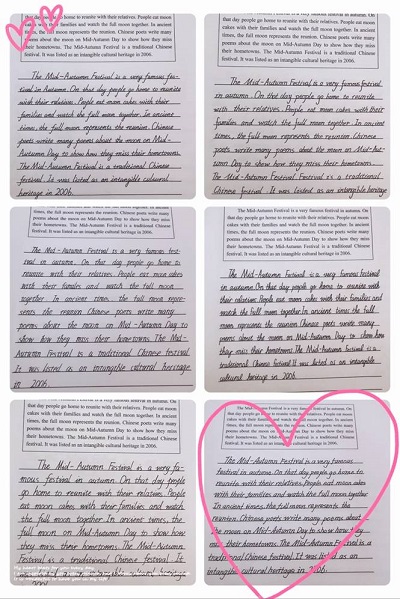 The Mid-Autumn Festival is a very famous festival in autumn. On
that day people go home to reunite with their relatives. People eat moon
cakes with their families and watch the full moon together. In ancient
times, the full moon represents the reunion. Chinese poets write many
poems about the moon on Mid-Autumn Day to show how they miss
their hometowns. The Mid-Autumn Festival is a traditional Chinese
festival. It was listed as an intangible cultural heritage in 2006.
The Mid-Autumn Festival is a very famous fes-
tival in Autumn. On that day people go home to reunite
with their relatives. People eat moon cakes with their
families and watch the full moon together. In ancient
times, the full moon represents the reunion. Chinese
poets write many poems about the moon on Mid-
Autumn Day to show how they miss their hometowns.
The Mid-Autumn Festival is a traditional Chinese
festival. It was listed as an intangible cultural
heritage in 2006.
that day people go home to reunite with their relatives. People eat moon
cakes with their families and watch the full moon together. In ancient
times, the full moon represents the reunion. Chinese poets write many
poems about the moon on Mid-Autumn Day to show how they miss
their hometowns. The Mid-Autumn Festival is a traditional Chinese
festival. It was listed as an intangible cultural heritage in 2006.
The Mid-Autumn Festival is a very famous festival
in autumn. On that day people go home to reunite
with their relatives. People eat moon cakes with their
families and watch the full moon together. In ancient
times, the full moon represents the reunion. Chinese
poets write many poems about the moon on Mid-Aut-
umn Day to show how they miss their hometowns.
The Mid-Autumn Festival is a traditional
Chinese festival. It was listed as an intangible heritage
times, the full moon represents the reunion. Chinese poets write many
poems about the moon on Mid-Autumn Day to show how they miss
their hometowns. The Mid-Autumn Festival is a traditional Chinese
festival. It was listed as an intangible cultural heritage in 2006.
The Mid-Autumn Festival is a very famous fest-
ival in autumn. On that day people go home to
reunite with their relatives. People eat moon cakes
with their families and watch the full moon
together. In ancient times, the full moon repre-
sents the reunion. Chinese poets write many
poems about the moon on Mid-Autumn Day to
show how they miss their hometowns. The Mid-
Autumn Festival is a traditional Chinese festival.
It was listed as an intangible cultural heritage
in 2006.
The Mid-Autumn Festival is a very famous festival in autumn. On
that day people go home to reunite with their relatives. People eat moon
cakes with their families and watch the full moon together. In ancient
times, the full moon represents the reunion. Chinese poets write many
poems about the moon on Mid-Autumn Day to show how they miss
their hometowns. The Mid-Autumn Festival is a traditional Chinese
festival. It was listed as an intangible cultural heritage in 2006.
The Mid-Autumn Festival is a very famous festival
in autumn. On that day people go home to reunite with
their relatives. People eat moon cakes with their families and
watch the full moon together. In ancient times, the full
moon represents the reunion. Chinese poets write many
poems about the moon on Mid-Autumn Day to show how
they miss their hometowns. The Mid-Autumn Festival is a
traditional Chinese festival. It was listed as an intangible
cultural heritage in 2006.
that day people go home to reunite with their relatives. People eat moon
cakes with their families and watch the full moon together. In ancient
times, the full moon represents the reunion. Chinese poets write many
poems about the moon on Mid-Autumn Day to show how they miss
their hometowns. The Mid-Autumn Festival is a traditional Chinese
festival. It was listed as an intangible cultural heritage in 2006.
The Mid-Autumn Festival is a very fa-
mous festival in autumn. On that day people
go home to reunite with their relatives. People
eat moon cakes with their families and watch
the full moon together. In ancient times, the
full moon on Mid-Autumn Day to show how
they miss their hometowns. The Mid-Autumn
Festival is a traditional Chinese festival. It
The Mid-Autumn Festival is a very famous festival in autumn. On
that day people go home to reunite with their relatives. People eat moon
cakes with their families and watch the full moon together. In ancient
times, the full moon represents the reunion. Chinese poets write many
poems about the moon on Mid-Autumn Day to show how they miss
their hometowns. The Mid-Autumn Festival is a traditional Chinese
festival. It was listed as an intangible cultural heritage in 2006.
The Mid-Autumn Festival is a very famous
festival in autumn. On that day people go home to
reunite with their relatives. People eat moon cakes
with their families and watch the full moon together.
In ancient times, the full moon represents the
reunion. Chinese poets write many poems about
the moon on Mid-Autumn Day to show how they
miss their hometowns. The Mid-Autumn Festival is a
traditional Chinese festival. It was listed as an
intangible cultural heritage in 2006.